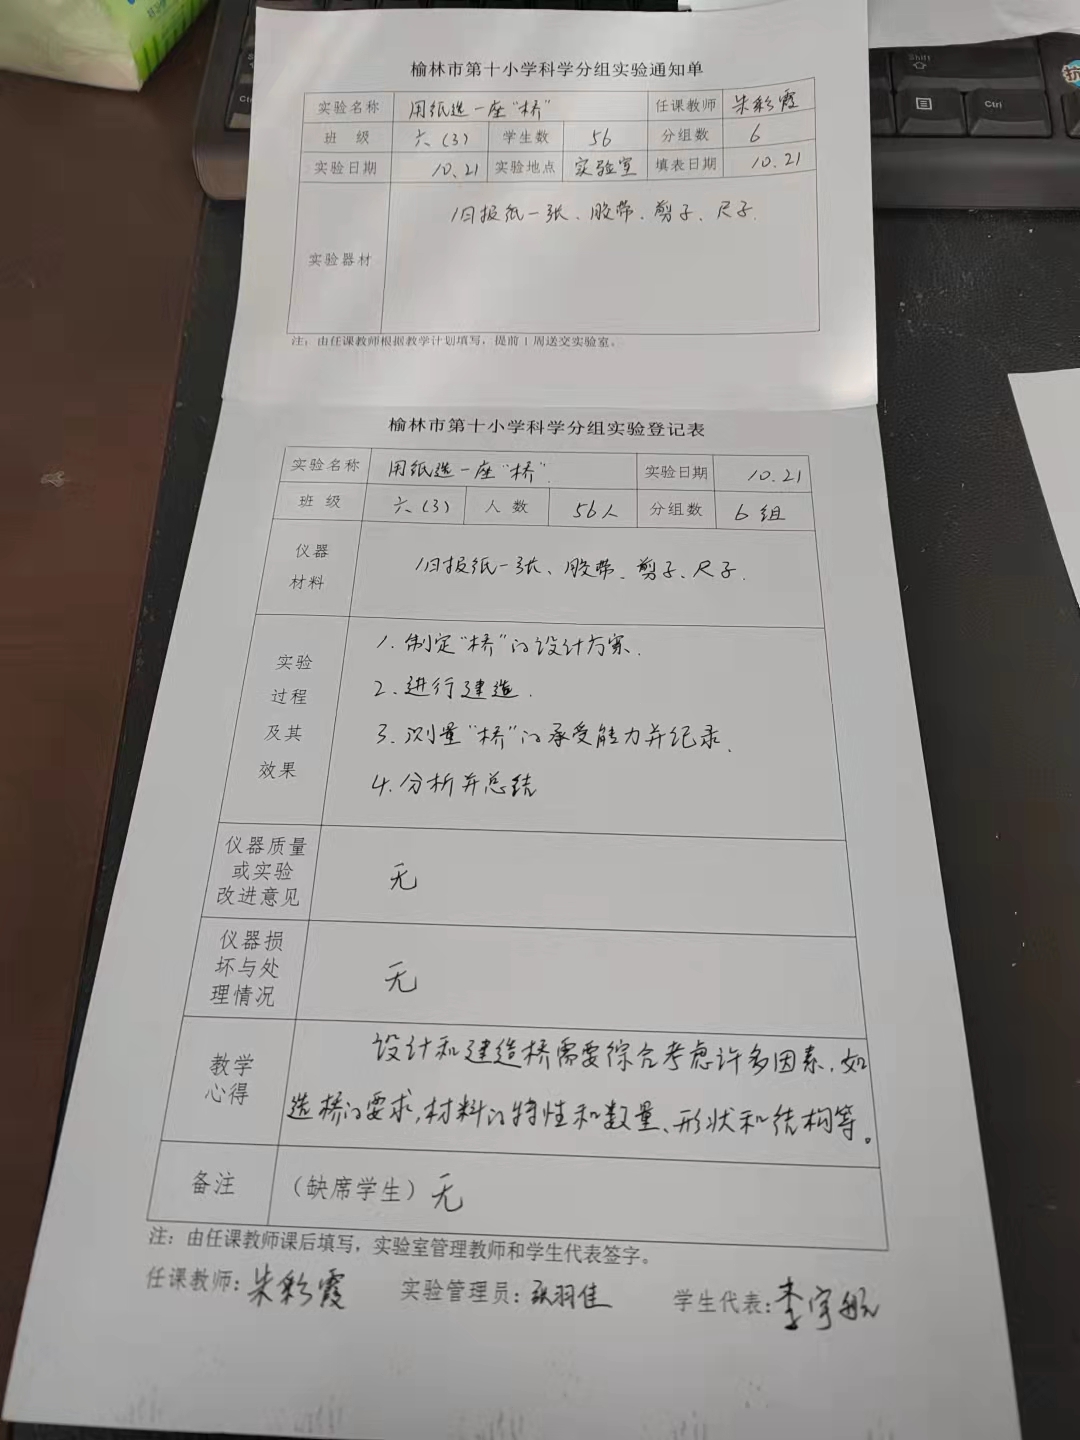 榆林市第十小学科学分组实验通知单
实验名称 用纸造一座“桥” 任课教师 朱彩霞
班 级 六（3） 学生数 56 分组数 6
实验日期 10.21 实验地点 实验室 填表日期 10.21
实验器材 旧报纸一张、胶带、剪子、尺子.
注：由任课教师根据教学计划填写，提前1周送交实验室。
榆林市第十小学科学分组实验登记表
实验名称 用纸造一座“桥”. 实验日期 10.21
班 级 六（3） 人 数 56人 分组数 6组
仪器
材料
旧报纸一张、胶带、剪子、尺子.
实验
过程
及其
效果
1.制定“桥”的设计方案.
2.进行建造.
3.测量“桥”的承受能力并纪录.
4.分析并总结
仪器质量
或实验
改进意见
无
仪器损
坏与处
理情况
无
教学
心得
设计和建造桥需要综合考虑许多因素,如
造桥的要求,材料的特性和数量、形状和结构等。
备注 （缺席学生）无
注：由任课教师课后填写，实验室管理教师和学生代表签字。
任课教师：朱彩霞 实验管理员：张羽佳 学生代表：李宇航
Shift
Ctrl
Ctrl
抗